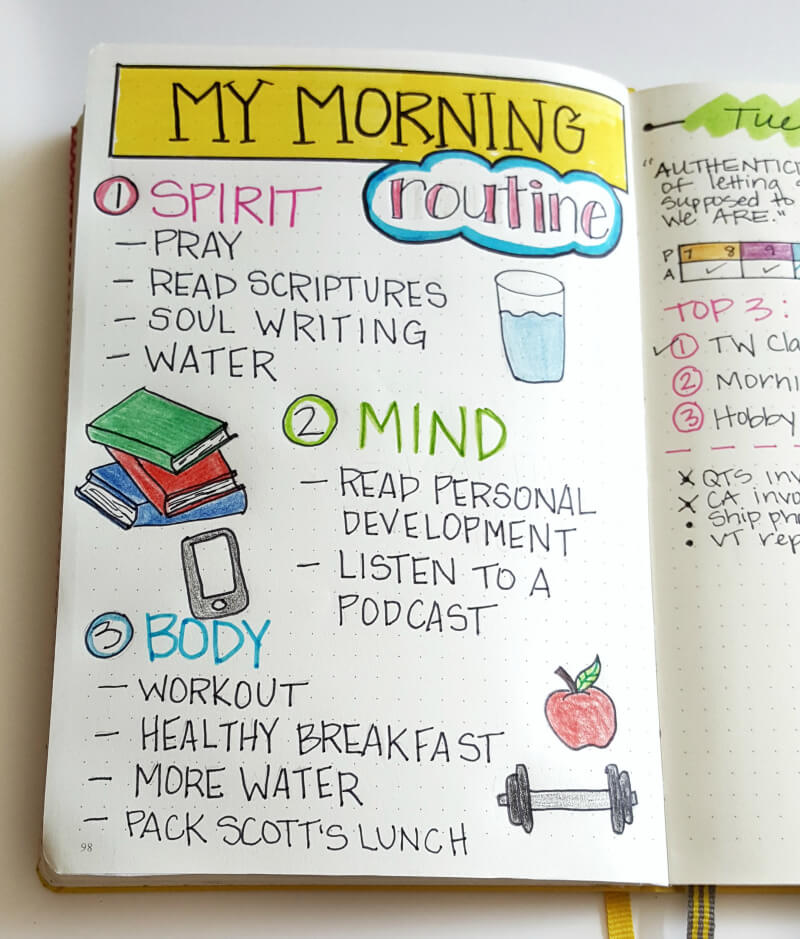 MY MORNING
routine
1 SPIRIT
— PRAY
— READ SCRIPTURES
— SOUL WRITING
— WATER
2 MIND
— READ PERSONAL
DEVELOPMENT
— LISTEN TO A
PODCAST
3 BODY
— WORKOUT
— HEALTHY BREAKFAST
— MORE WATER
— PACK SCOTT'S LUNCH
98
of letting
supposed to
WE ARE."
P 7 8 9
A ✓ ✓
TOP 3:
✓ 1 TW
2
3 Hobby
x QTS
x CA
• Ship
• VT